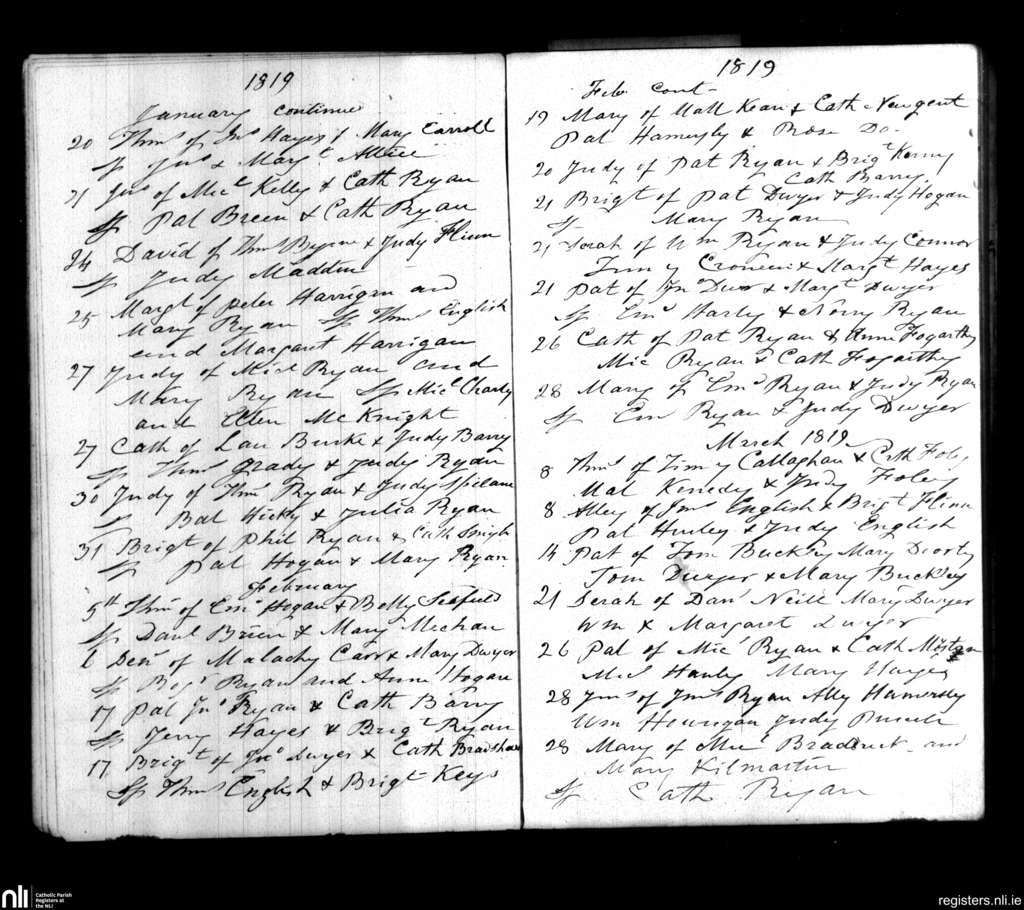 1819
January continued
20 Thms of Jns Hayes & Mary Carroll
Sp Jns & Margt
21 Jns of Micl Kelly & Cath Ryan
Sp Pat Breen & Cath Ryan
24 David of Thms Byrne & Judy Flinn
Sp Judy Madden
25 Margt of peter Harrigan and
Mary Ryan Sp Thms English
and Margaret Harrigan
27 Judy of Micl Ryan and
Mary Ryan Sp Micl Charly
and Ellen McKnight
27 Cath of Lau Burke & Judy Barry
Sp Thms Grady & Judy Ryan
30 Judy of Thms Ryan & Judy Spilane
Pat Hicky & Julia Ryan
31 Brigt of Phil Ryan & Cath Smith
Sp Pat Hogan & Mary Ryan
February
5th Thms of Emd Hogan & Betty
Sp Danl Brien & Mary Mechan
6 Denis of Malachy Carr & Mary Dwyer
Sp Ryan and Anne Hogan
17 Pat Jno Ryan & Cath Barry
Sp Jerry Hayes & Brigt Ryan
17 Brigt of Jno Dwyer & Cath Bradshaw
Sp Thms English & Brigt Keys
1819
Feb cont
19 Mary of Matt Kean & Cath Neugent
Pat Hamersly & Rose Do.
20 Judy of Pat Ryan & Brigt Kenny
Cath Barry
21 Brigt of Pat Dwyer & Judy Hogan
Sp Mary Ryan
21 Serah of Wm Ryan & Judy Connor
Timy Croneen & Margt Hayes
21 Pat of Jno Dwer & Margt Dwyer
Sp Emd Harty & Norry Ryan
26 Cath of Pat Ryan & Anne Fogarthy
Mic Ryan & Cath Fogarthy
28 Mary of Emd Ryan & Judy Ryan
Sp Em Ryan & Judy Dwyer
March 1819
8 Thms of Timy Callaghan & Cath Foley
Mat Kenedy & Judy Foley
8 Alley of Jms English & Brigt Flinn
Pat Hurley & Judy English
14 Pat of Tom Buckley Mary Doorty
Tom Dwyer & Mary Buckley
21 Serah of Danl Neill Mary Dwyer
Wm & Margaret Dwyer
26 Pat of Mic Ryan & Cath
Mic Hanly Mary Hayes
28 Jms of Jms Ryan Ally Hamersly
Wm Hourigan Judy
28 Mary of Micl and
Mary Kilmartin
Sp Cath Ryan
nli
Catholic Parish
Registers at
the NLI
registers.nli.ie